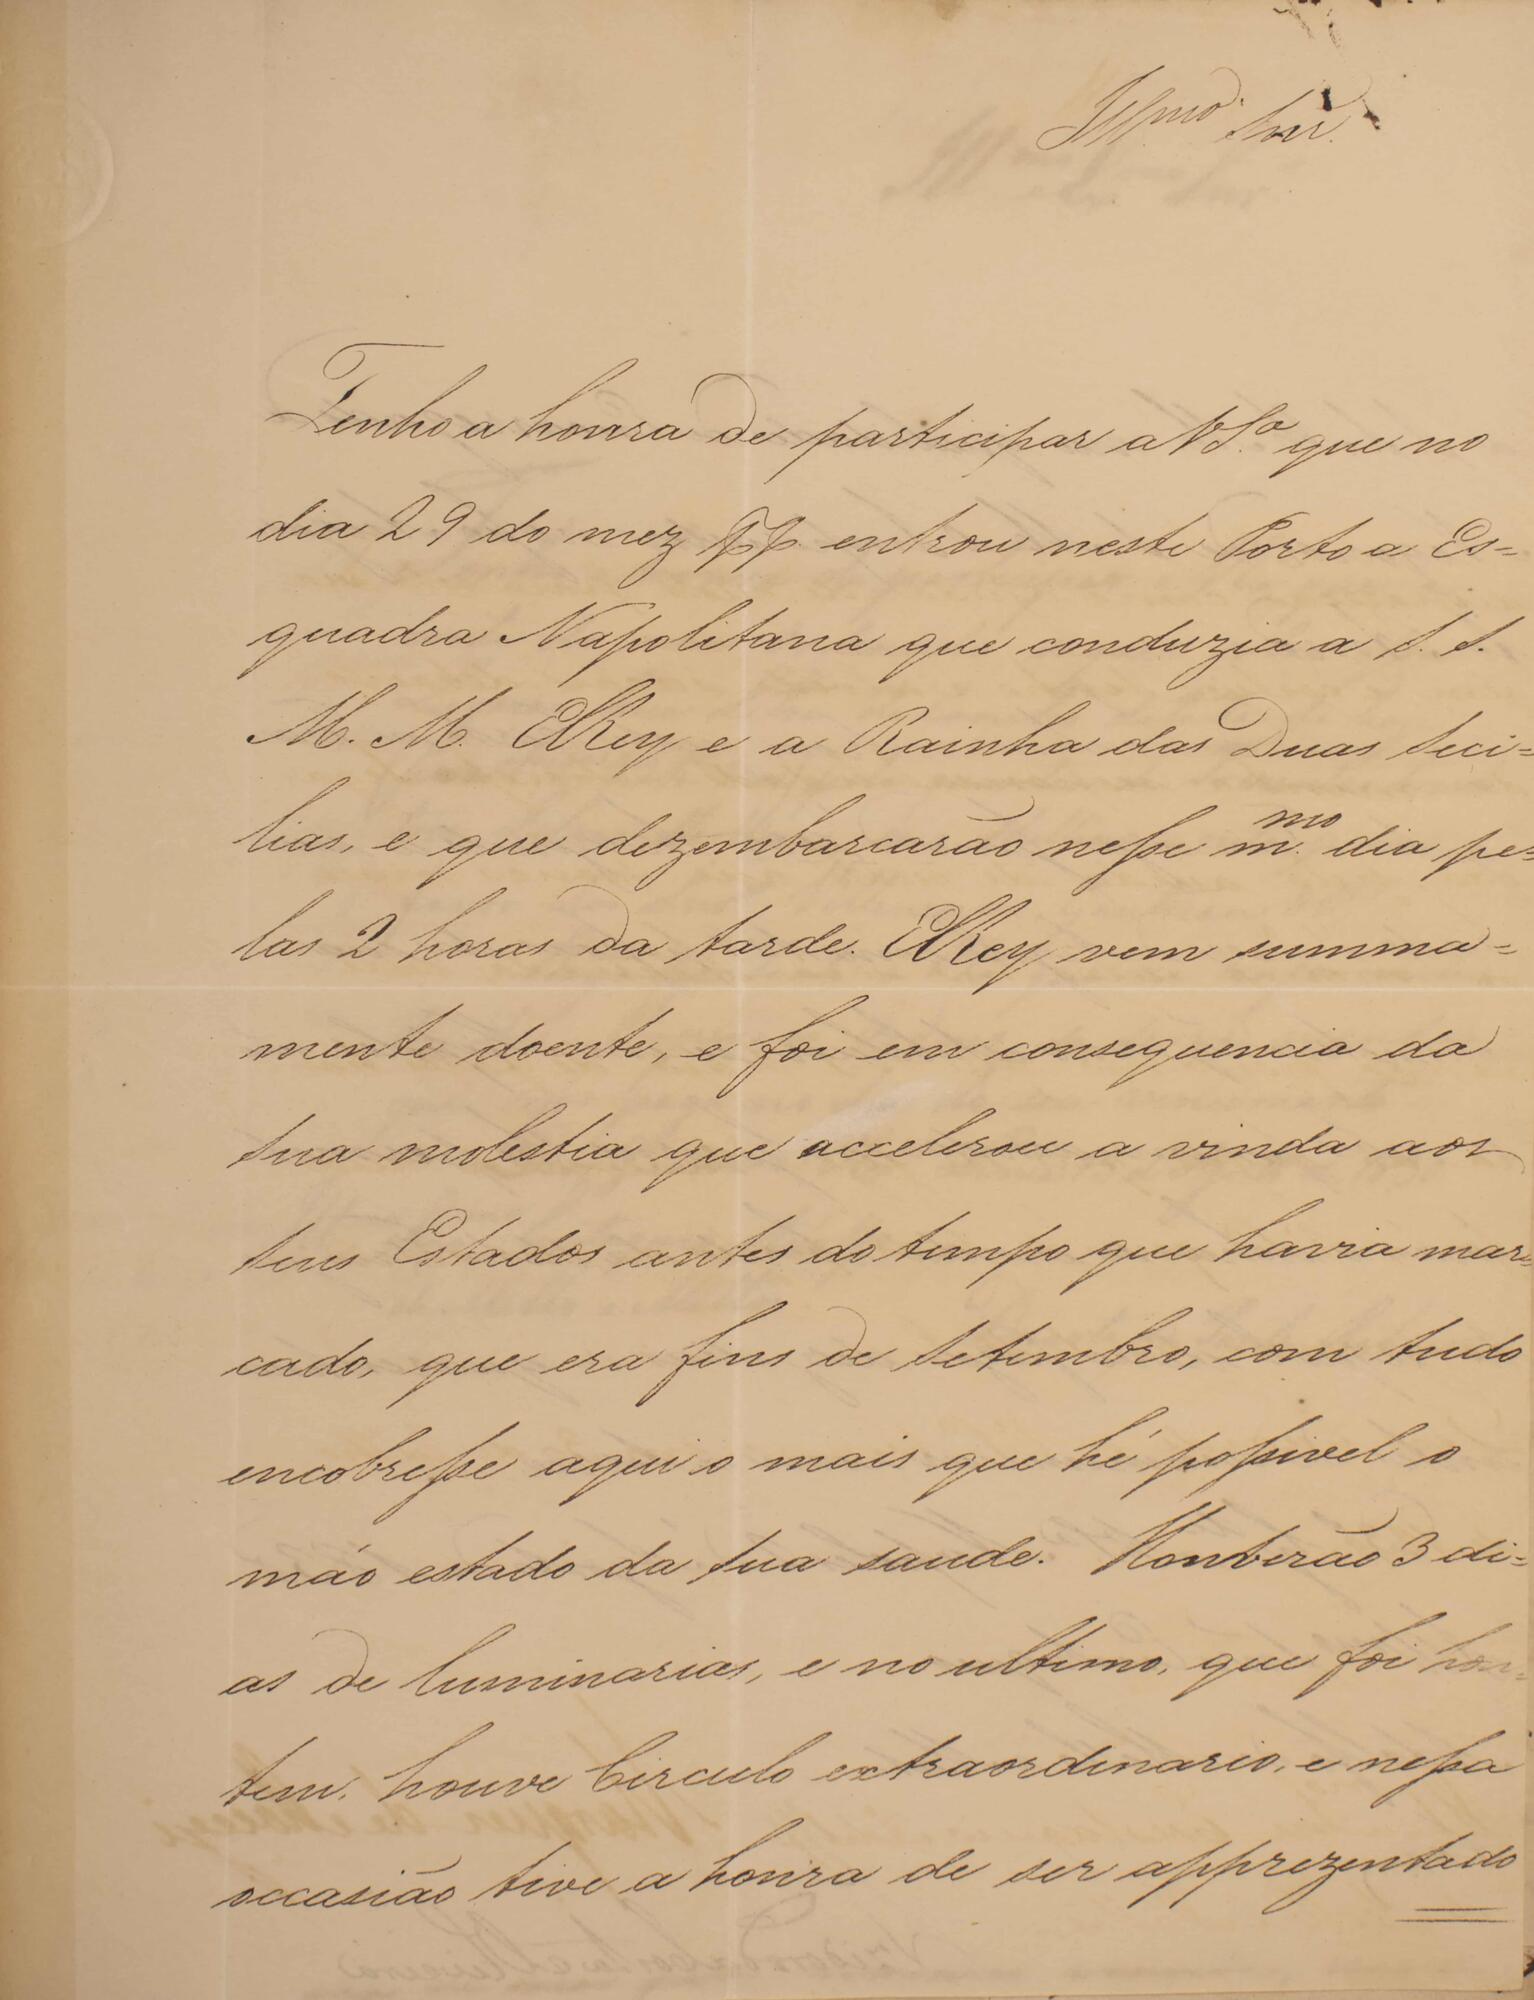 Illmo. Snr.
Tenho a honra de participar a V S.ª que no
dia 29 do mez pp. entrou neste Porto a Es=
quadra Napolitana que conduzia a S. S.
M. M. ElRey e a Rainha das Duas Seci=
lias, e que dezembarcarão nesse m.mo dia pe=
las 2 horas da tarde. ElRey vem summa=
mente doente, e foi em consequencia da
sua molestia que accelerou a vinda aos
seus Estados antes do tempo que havia mar=
cado, que era fins de Setembro, com tudo
encobresse aqui o mais que hé possivel o
máo estado da sua saude. Houverão 3 di=
as de luminarias, e no ultimo, que foi hon=
tem, houve Circulo extraordinario, e nessa
occasião tive a honra de ser apprezentado